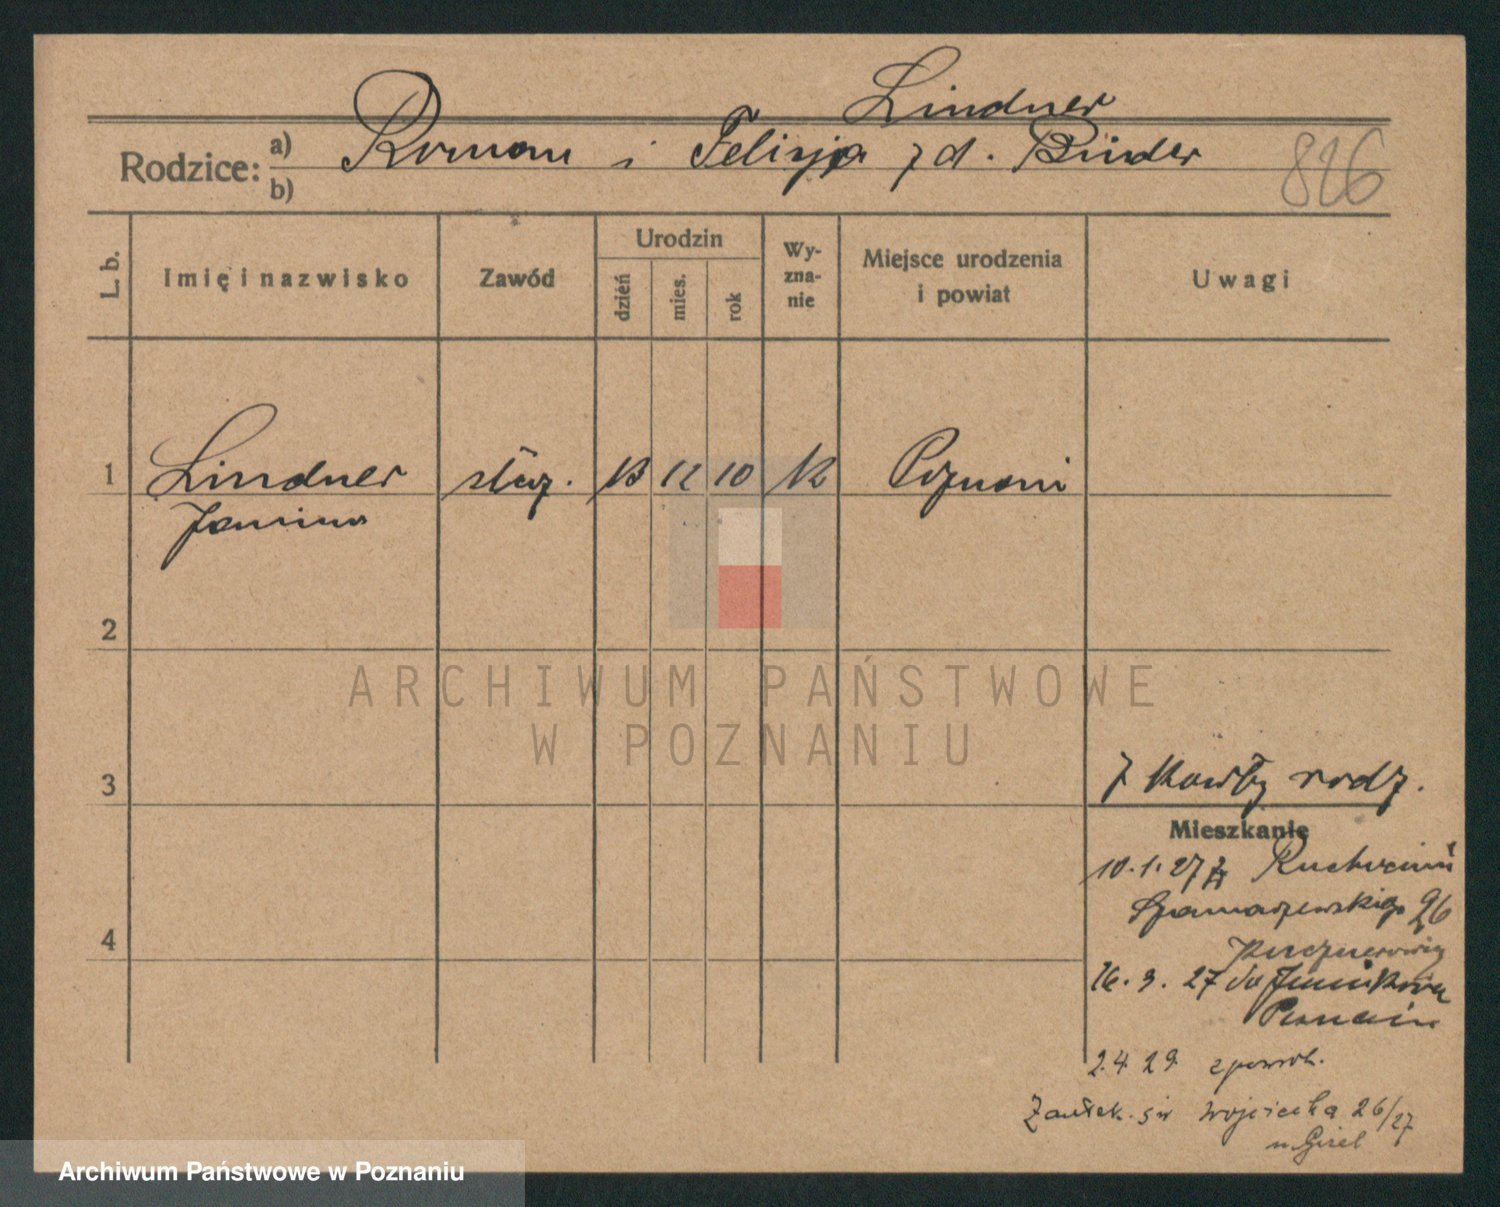 Lindner
Rodzice: a) Roman i Felicja z d. Binder
b)
826
L. b.
Imię i nazwisko
Zawód
Urodzin
dzień
mies.
rok
Wy-
zna-
nie
Miejsce urodzenia
i powiat
Uwagi
1 Lindner służ. 13 12 10 K Poznań
Janina
2
ARCHIWUM PAŃSTWOWE
W POZNANIU
3
z karty rodz.
Mieszkanie
10.1.27 z
26
4
16.3.27 do Junikowa
Poznań
2.4.29 z powrot.
Zaułek św Wojciecha 26/27
u Gizel
Archiwum Państwowe w Poznaniu